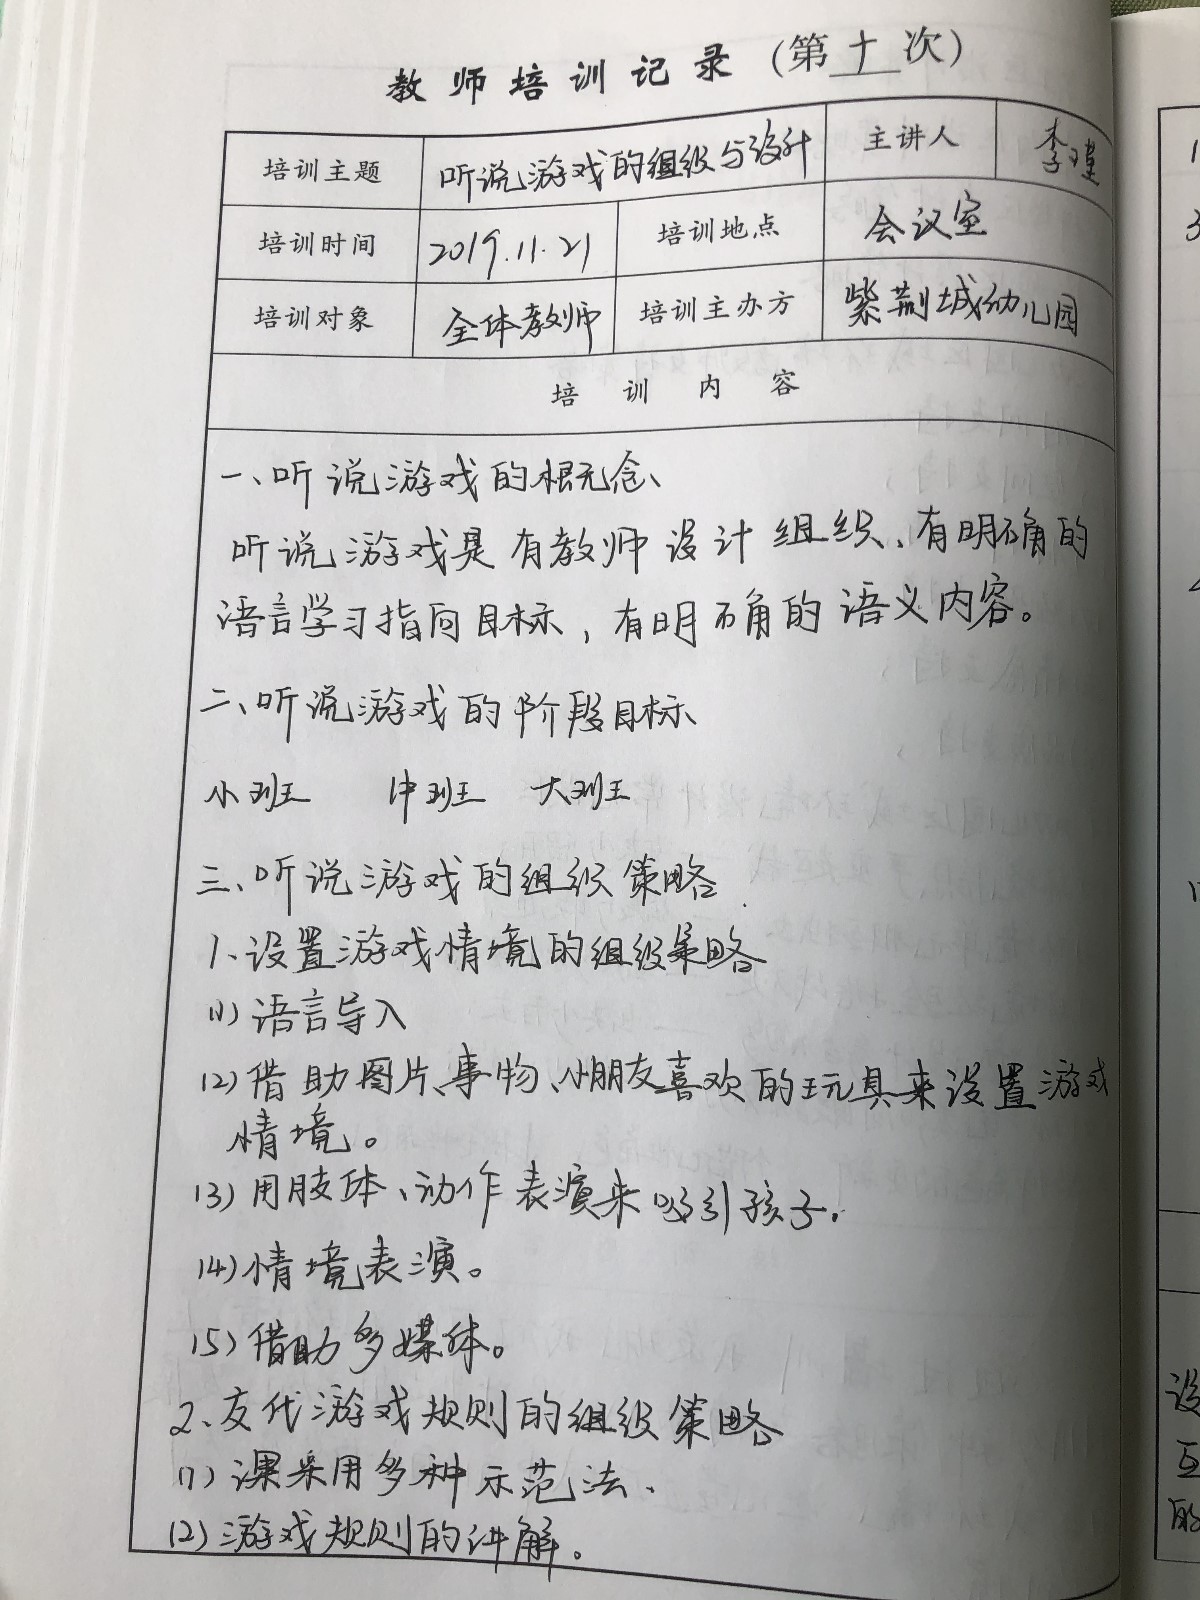 教师培训记录（第十次）
培训主题 听说游戏的组织与设计 主讲人 李瑾
培训时间 2019.11.21 培训地点 会议室
培训对象 全体教师 培训主办方 紫荆城幼儿园
培训内容
一、听说游戏的概念、
听说游戏是有教师设计组织、有明确的
语言学习指向目标，有明确的语义内容。
二、听说游戏的阶段目标、
小班 中班 大班
三、听说游戏的组织策略
1、设置游戏情境的组织策略
(1) 语言导入
(2) 借助图片、事物、小朋友喜欢的玩具来设置游戏
情境。
(3) 用肢体、动作表演来吸引孩子.
(4) 情境表演。
(5) 借助多媒体。
2、交代游戏规则的组织策略
(1) 课采用多种示范法、
(2) 游戏规则的讲解。
设
互
的